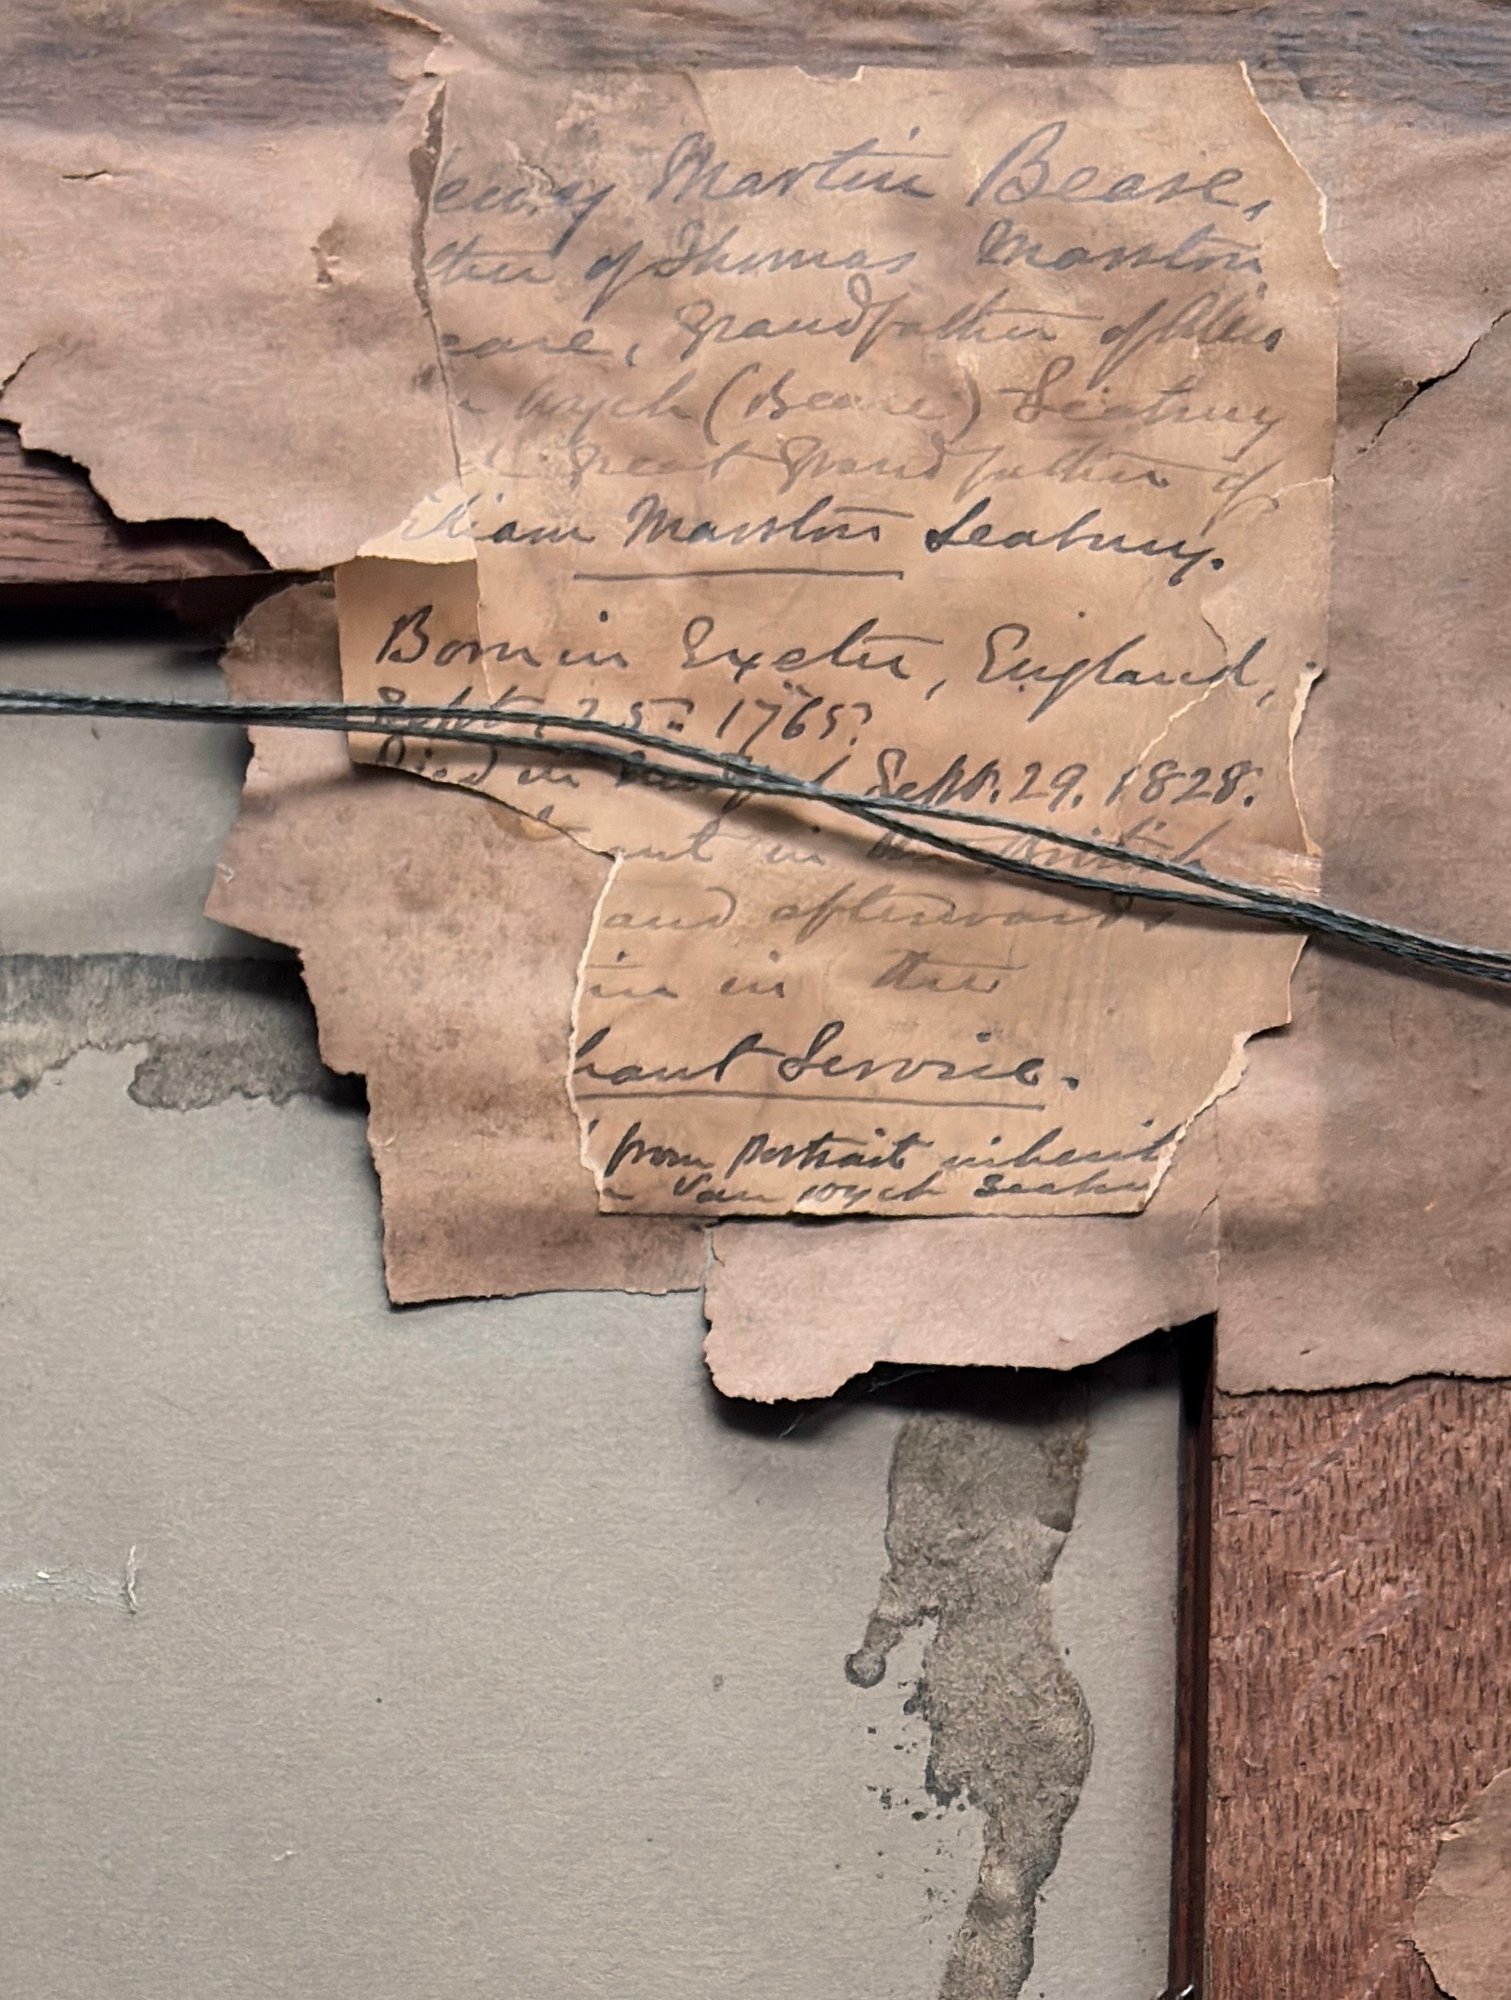 Martin Bease,
ther of Thomas Marston
ease, Grandfather of
Wych (Bease) Seabury
d Great Grandfather of
illiam Marston Seabury.
Born in Exeter, England,
Sept. 25. 1765.
Died in Sept. 29. 1828.
ant in the British
and afterwards
in in the
hant Service.
from portrait inherit
Van Wych Seabu